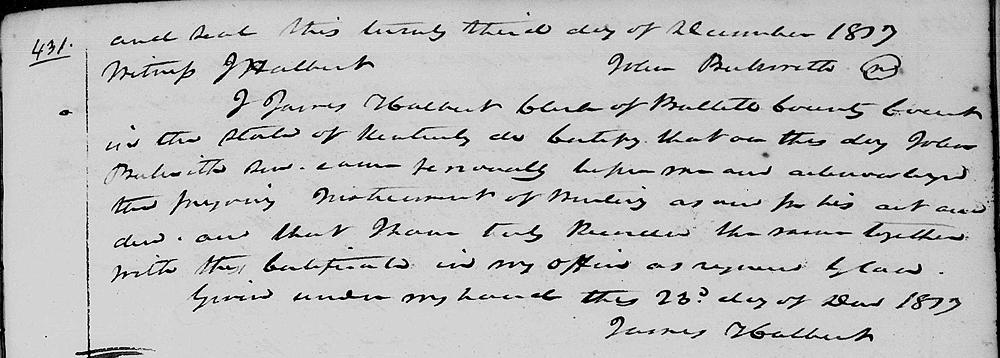 431.
and seal this twenty third day of December 1817
Witness J Halbert John Beckwith
I James Halbert Clerk of Bullitt County Court
in the state of Kentucky do Certify that on this day John
Beckwith Sen. came personally before me and acknowledged
the foregoing Instrument of Writing as and for his act and
deed. and that I have truly Recorded the same together
with this Certificate in my office as required by law.
Given under my hand this 23d day of Dec 1817
James Halbert